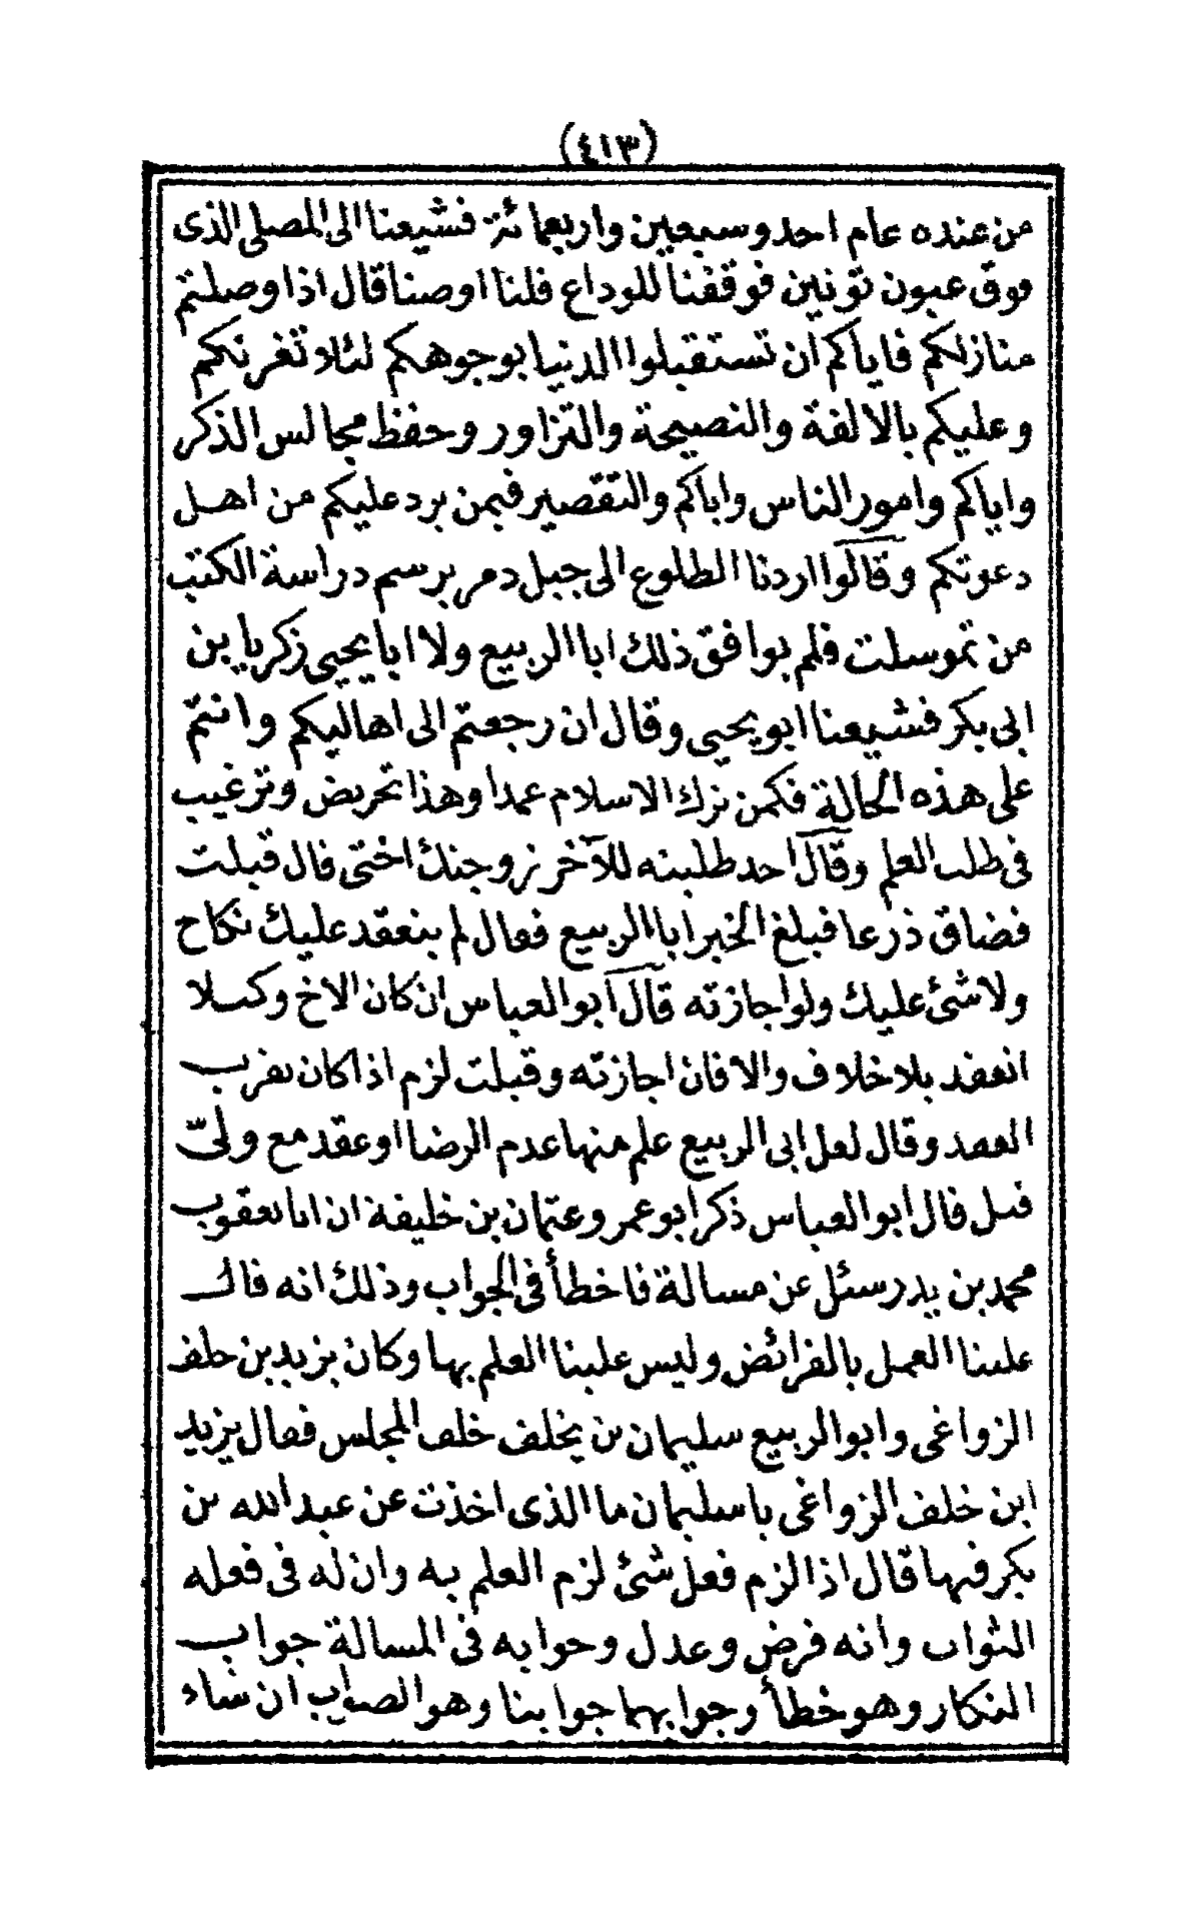 (٤١٣)
من عنده عام احد وسبعين واربعمائة فشيعنا الى المصلى الذى
فوق عيون تونين فوقفنا للوداع قلنا اوصنا قال اذا وصلتم
منازلكم فاياكم ان تستقبلوا الدنيا بوجوهكم لئلا تغرنكم
وعليكم بالالفة والنصيحة والتزاور وحفظ مجالس الذكر
واياكم وامور الناس واياكم والتقصير فيمن يرد عليكم من اهل
دعوتكم وقالوا اردنا الطلوع الى جبل دمر برسم دراسة الكتب
من تموسلت فلم يوافق ذلك ابا الربيع ولا ابا يحيى زكرياء بن
ابى بكر فشيعنا ابو يحيى وقال ان رجعتم الى اهاليكم وانتم
على هذه الحالة فكمن ترك الاسلام عمدا وهذا تحريض وترغيب
فى طلب العلم وقال احد طلبته للآخر زوجتك اختى قال قبلت
فضاق ذرعا فبلغ الخبر ابا الربيع فقال لم ينعقد عليك نكاح
ولا شئ عليك ولو اجازته قال ابو العباس ان كان الاخ وكيلا
انعقد بلا خلاف والا فان اجازته وقبلت لزم اذا كان بقرب
العقد وقال لعل ابى الربيع علم منها عدم الرضا او عقد مع ولىّ
قبل قال ابو العباس ذكر ابو عمر وعثمان بن خليفة ان ابا يعقوب
محمد بن يدر سئل عن مسالة فاخطأ فى الجواب وذلك انه قال
علينا العمل بالفرائض وليس علينا العلم بها وكان يزيد بن خلف
الزواغى وابو الربيع سليمان بن يخلف خلف المجلس فقال يزيد
ابن خلف الزواغى يا سليمان ما الذى اخذت عن عبد الله بن
بكر فيها قال اذا لزم فعل شئ لزم العلم به وان له فى فعله
الثواب وانه فرض وعدل وجوابه فى المسالة جواب
النكار وهو خطأ وجوابهما جوابنا وهو الصواب ان شاء